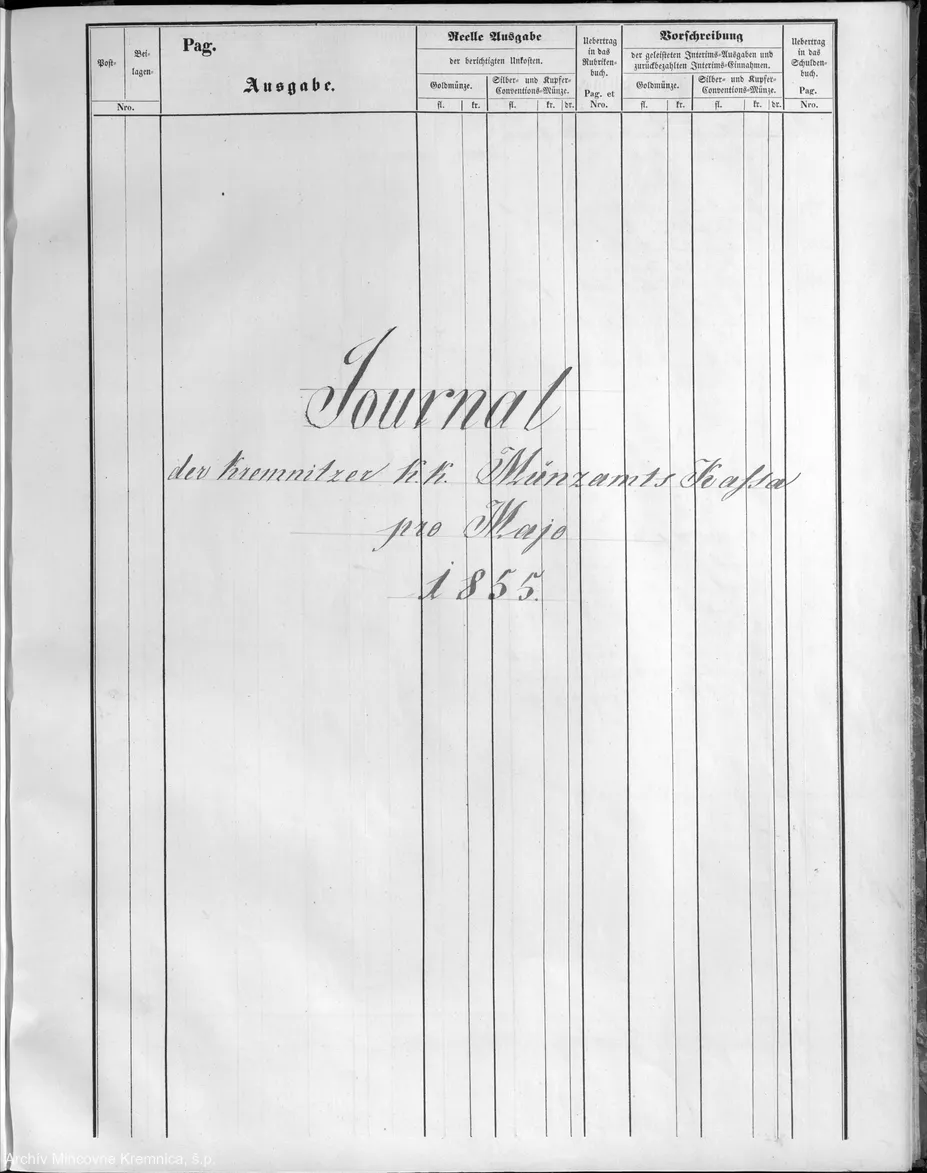 Post-
Bei-
lagen-
Nro.
Pag.
Ausgabe.
Reelle Ausgabe
der berichtigten Unkosten.
Goldmünze.
Silber- und Kupfer-
Conventions-Münze.
fl. kr. fl. kr. dr.
Uebertrag
in das
Rubriken-
buch.
Pag. et
Nro.
Vorschreibung
der geleisteten Interims-Ausgaben und
zurückbezahlten Interims-Einnahmen.
Goldmünze.
Silber- und Kupfer-
Conventions-Münze.
fl. kr. fl. kr. dr.
Uebertrag
in das
Schulden-
buch.
Pag.
Nro.
Journal
der Kremnitzer k.k. Münzamts Kassa
pro Majo
1855.
Archív Mincovne Kremnica, š.p.